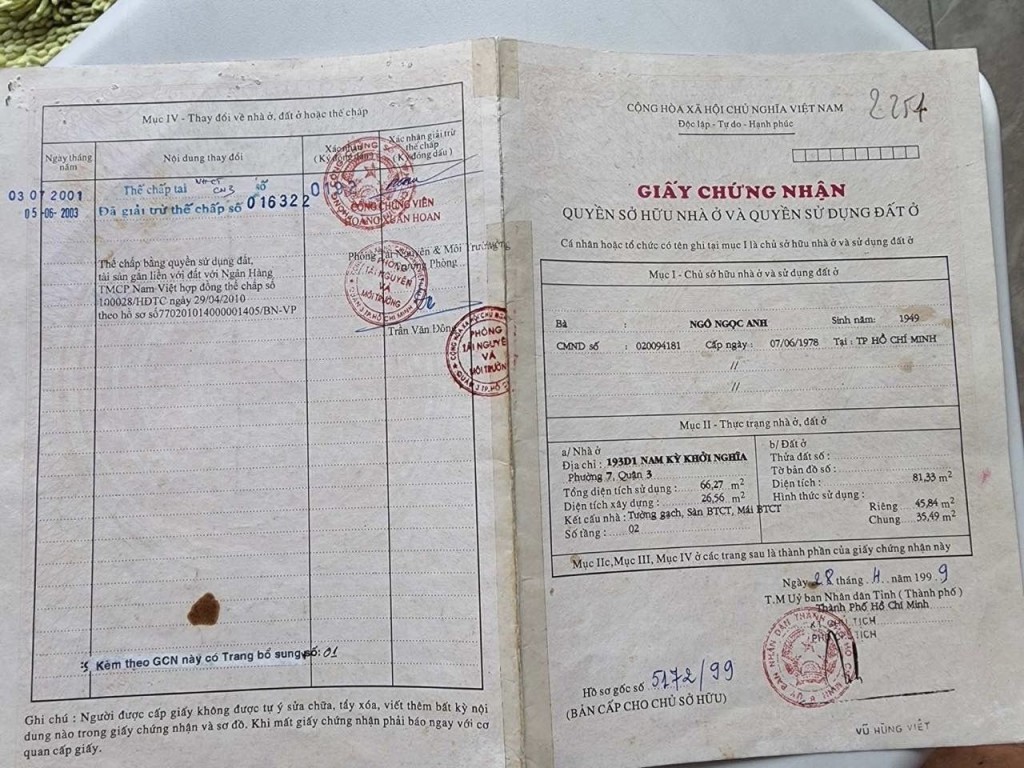 Mục IV - Thay đổi về nhà ở, đất ở hoặc thế chấp
Ngày tháng năm
Nội dung thay đổi
Xác nhận (Ký đóng dấu)
Xác nhận giải trừ thế chấp (Ký đóng dấu)
03 07 2001
Thế chấp tại VHCT CN3 số
05-06-2003
Đã giải trừ thế chấp số 016322
CÔNG CHỨNG VIÊN
HOÀNG XUÂN HOAN
Thế chấp bằng quyền sử dụng đất,
tài sản gắn liền với đất với Ngân Hàng
TMCP Nam Việt hợp đồng thế chấp số
100028/HĐTC ngày 29/04/2010
theo hồ sơ số770201014000001405/BN-VP
Phòng Tài Nguyên & Môi Trường
Trần Văn Đông
PHÒNG
TÀI NGUYÊN
VÀ
MÔI TRƯỜNG
QUẬN 3 TP.HỒ CHÍ MINH
PHÒNG
TÀI NGUYÊ
VÀ
MÔI TRƯỜN
QUẬN 3 TP.HỒ
Kèm theo GCN này có Trang bổ sung số: 01
Ghi chú : Người được cấp giấy không được tự ý sửa chữa, tẩy xóa, viết thêm bất kỳ nội
dung nào trong giấy chứng nhận và sơ đồ. Khi mất giấy chứng nhận phải báo ngay với cơ
quan cấp giấy.
CỘNG HÒA XÃ HỘI CHỦ NGHĨA VIỆT NAM
Độc lập - Tự do - Hạnh phúc
2254
GIẤY CHỨNG NHẬN
QUYỀN SỞ HỮU NHÀ Ở VÀ QUYỀN SỬ DỤNG ĐẤT Ở
Cá nhân hoặc tổ chức có tên ghi tại mục I là chủ sở hữu nhà ở và sử dụng đất ở
Mục I - Chủ sở hữu nhà ở và sử dụng đất ở
Bà : NGÔ NGỌC ANH Sinh năm: 1949
CMND số : 020094181 Cấp ngày : 07/06/1978 Tại : TP HỒ CHÍ MINH
//
//
Mục II - Thực trạng nhà ở, đất ở
a/ Nhà ở
Địa chỉ : 193D1 NAM KỲ KHỞI NGHĨA
Phường 7, Quận 3
Tổng diện tích sử dụng : 66,27 m2
Diện tích xây dựng : 26,56 m2
Kết cấu nhà : Tường gạch, Sàn BTCT, Mái BTCT
Số tầng : 02
b/ Đất ở
Thửa đất số :
Tờ bản đồ số :
Diện tích : 81,33 m2
Hình thức sử dụng :
Riêng : 45,84 m2
Chung : 35,49 m2
Mục IIc, Mục III, Mục IV ở các trang sau là thành phần của giấy chứng nhận này
Ngày 28 tháng 4 năm 1999
T.M Uỷ ban Nhân dân Tỉnh ( Thành phố )
Thành Phố Hồ Chí Minh
Hồ sơ gốc số 5172/99
(BẢN CẤP CHO CHỦ SỞ HỮU)
VŨ HÙNG VIỆT